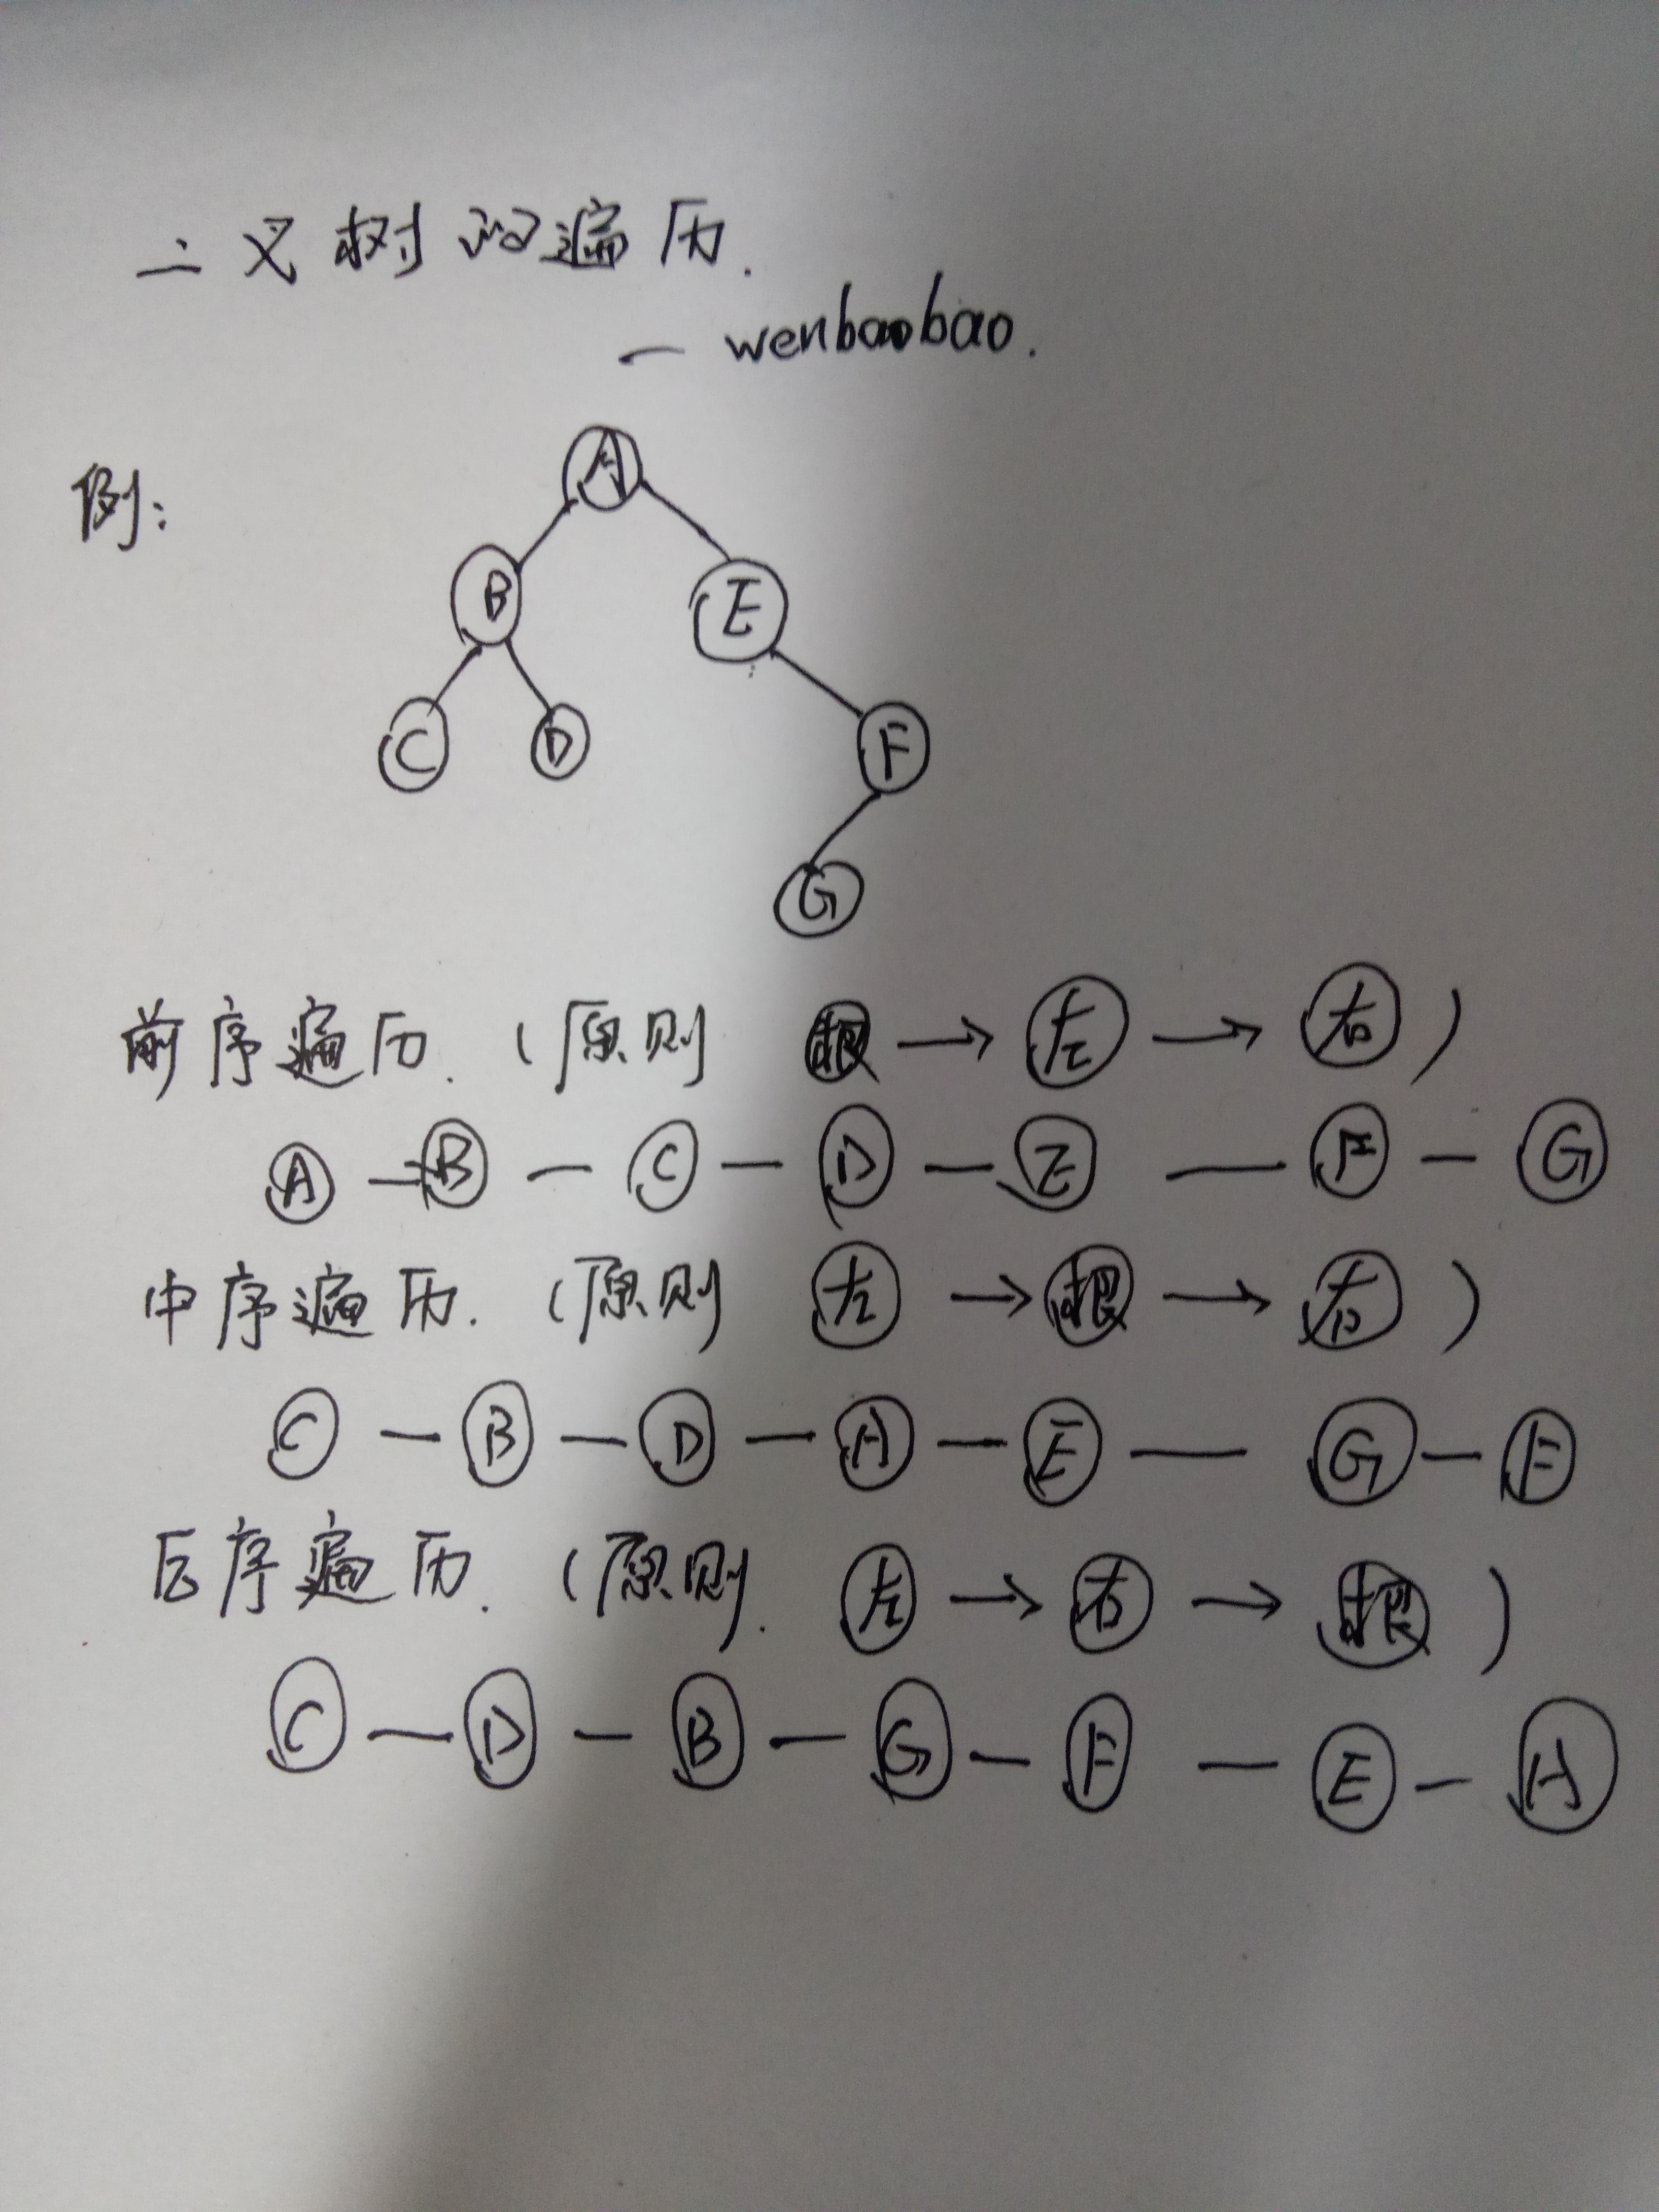 二叉树的遍历.
— wenbaobao.
例:
A
B E
C D F
G
前序遍历. (原则 根 → 左 → 右)
A — B — C — D — E — F — G
中序遍历. (原则 左 → 根 → 右)
C — B — D — A — E — G — F
后序遍历. (原则. 左 → 右 → 根)
C — D — B — G — F — E — A